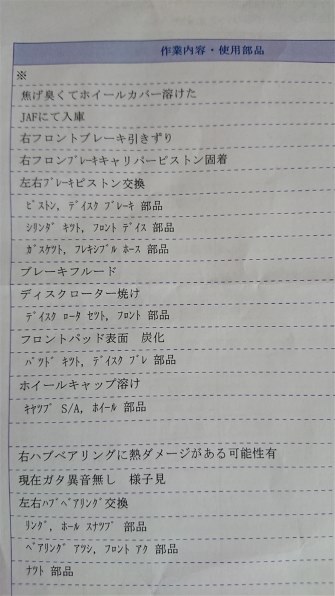 作業内容・使用部品
※
焦げ臭くてホイールカバー溶けた
JAFにて入庫
右フロントブレーキ引きずり
右フロンブレーキキャリパーピストン固着
左右ブレーキピストン交換
ピストン, デイスク ブレーキ 部品
シリンダ キツト, フロント デイス 部品
ガスケツト, フレキシブル ホース 部品
ブレーキフルード
ディスクローター焼け
デイスク ロータ セツト, フロント 部品
フロントパッド表面 炭化
パツド キツト, デイスク ブレ 部品
ホイールキャップ溶け
キヤツプ S/A, ホイール 部品
右ハブベアリングに熱ダメージがある可能性有
現在ガタ異音無し 様子見
左右ハブベアリング交換
リング, ホール スナツプ 部品
ベアリング アツシ, フロント アク 部品
ナツト 部品